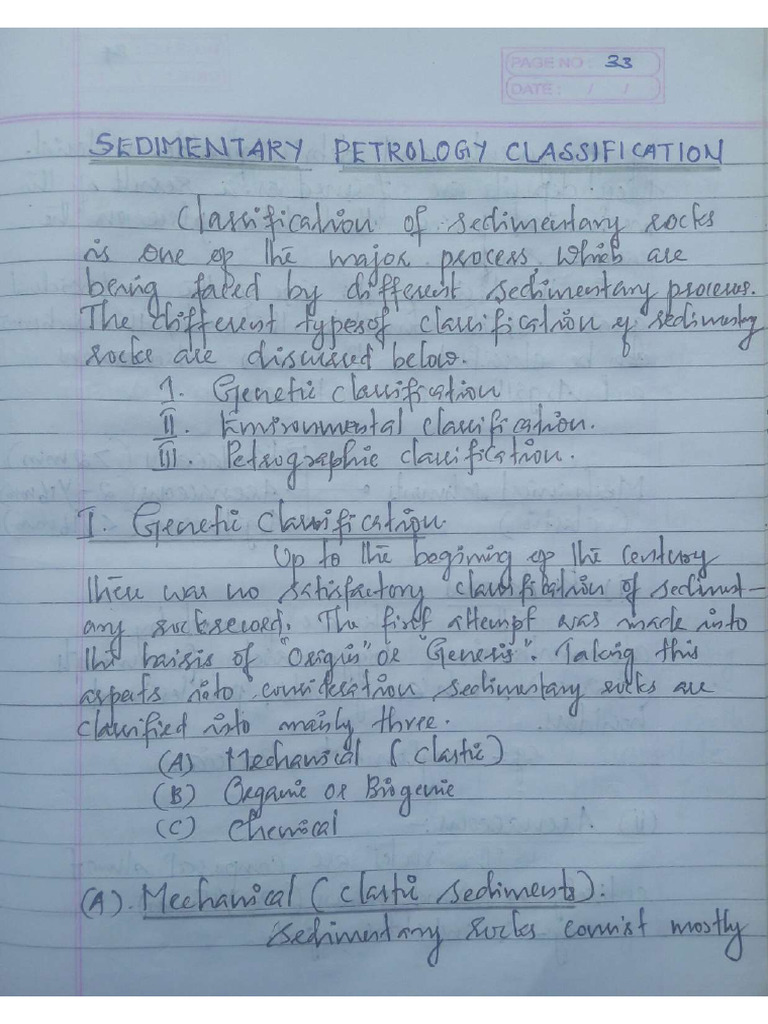 PAGE NO: 33
DATE: / /
SEDIMENTARY PETROLOGY CLASSIFICATION
Classification of sedimentary rocks
is one of the major process, which are
being faced by different sedimentary process.
The different types of classification of sedimentry
rocks are discussed below.
I. Genetic classification
II. Environmental classification.
III. Petrographic classification.
I. Genetic Classification.
Up to the begining of the century
there was no satisfactory classification of sediment-
ary rocks record. The first attempt was made into
the baisis of "Origin" or "Genesis". Taking this
aspats into consideration sedimentary rocks are
classified into mainly three.
(A) Mechanical (Clastic)
(B) Organic or Biogenic
(C) Chemical
(A). Mechanical (Clastic sediments):
sedimentary rocks consist mostly